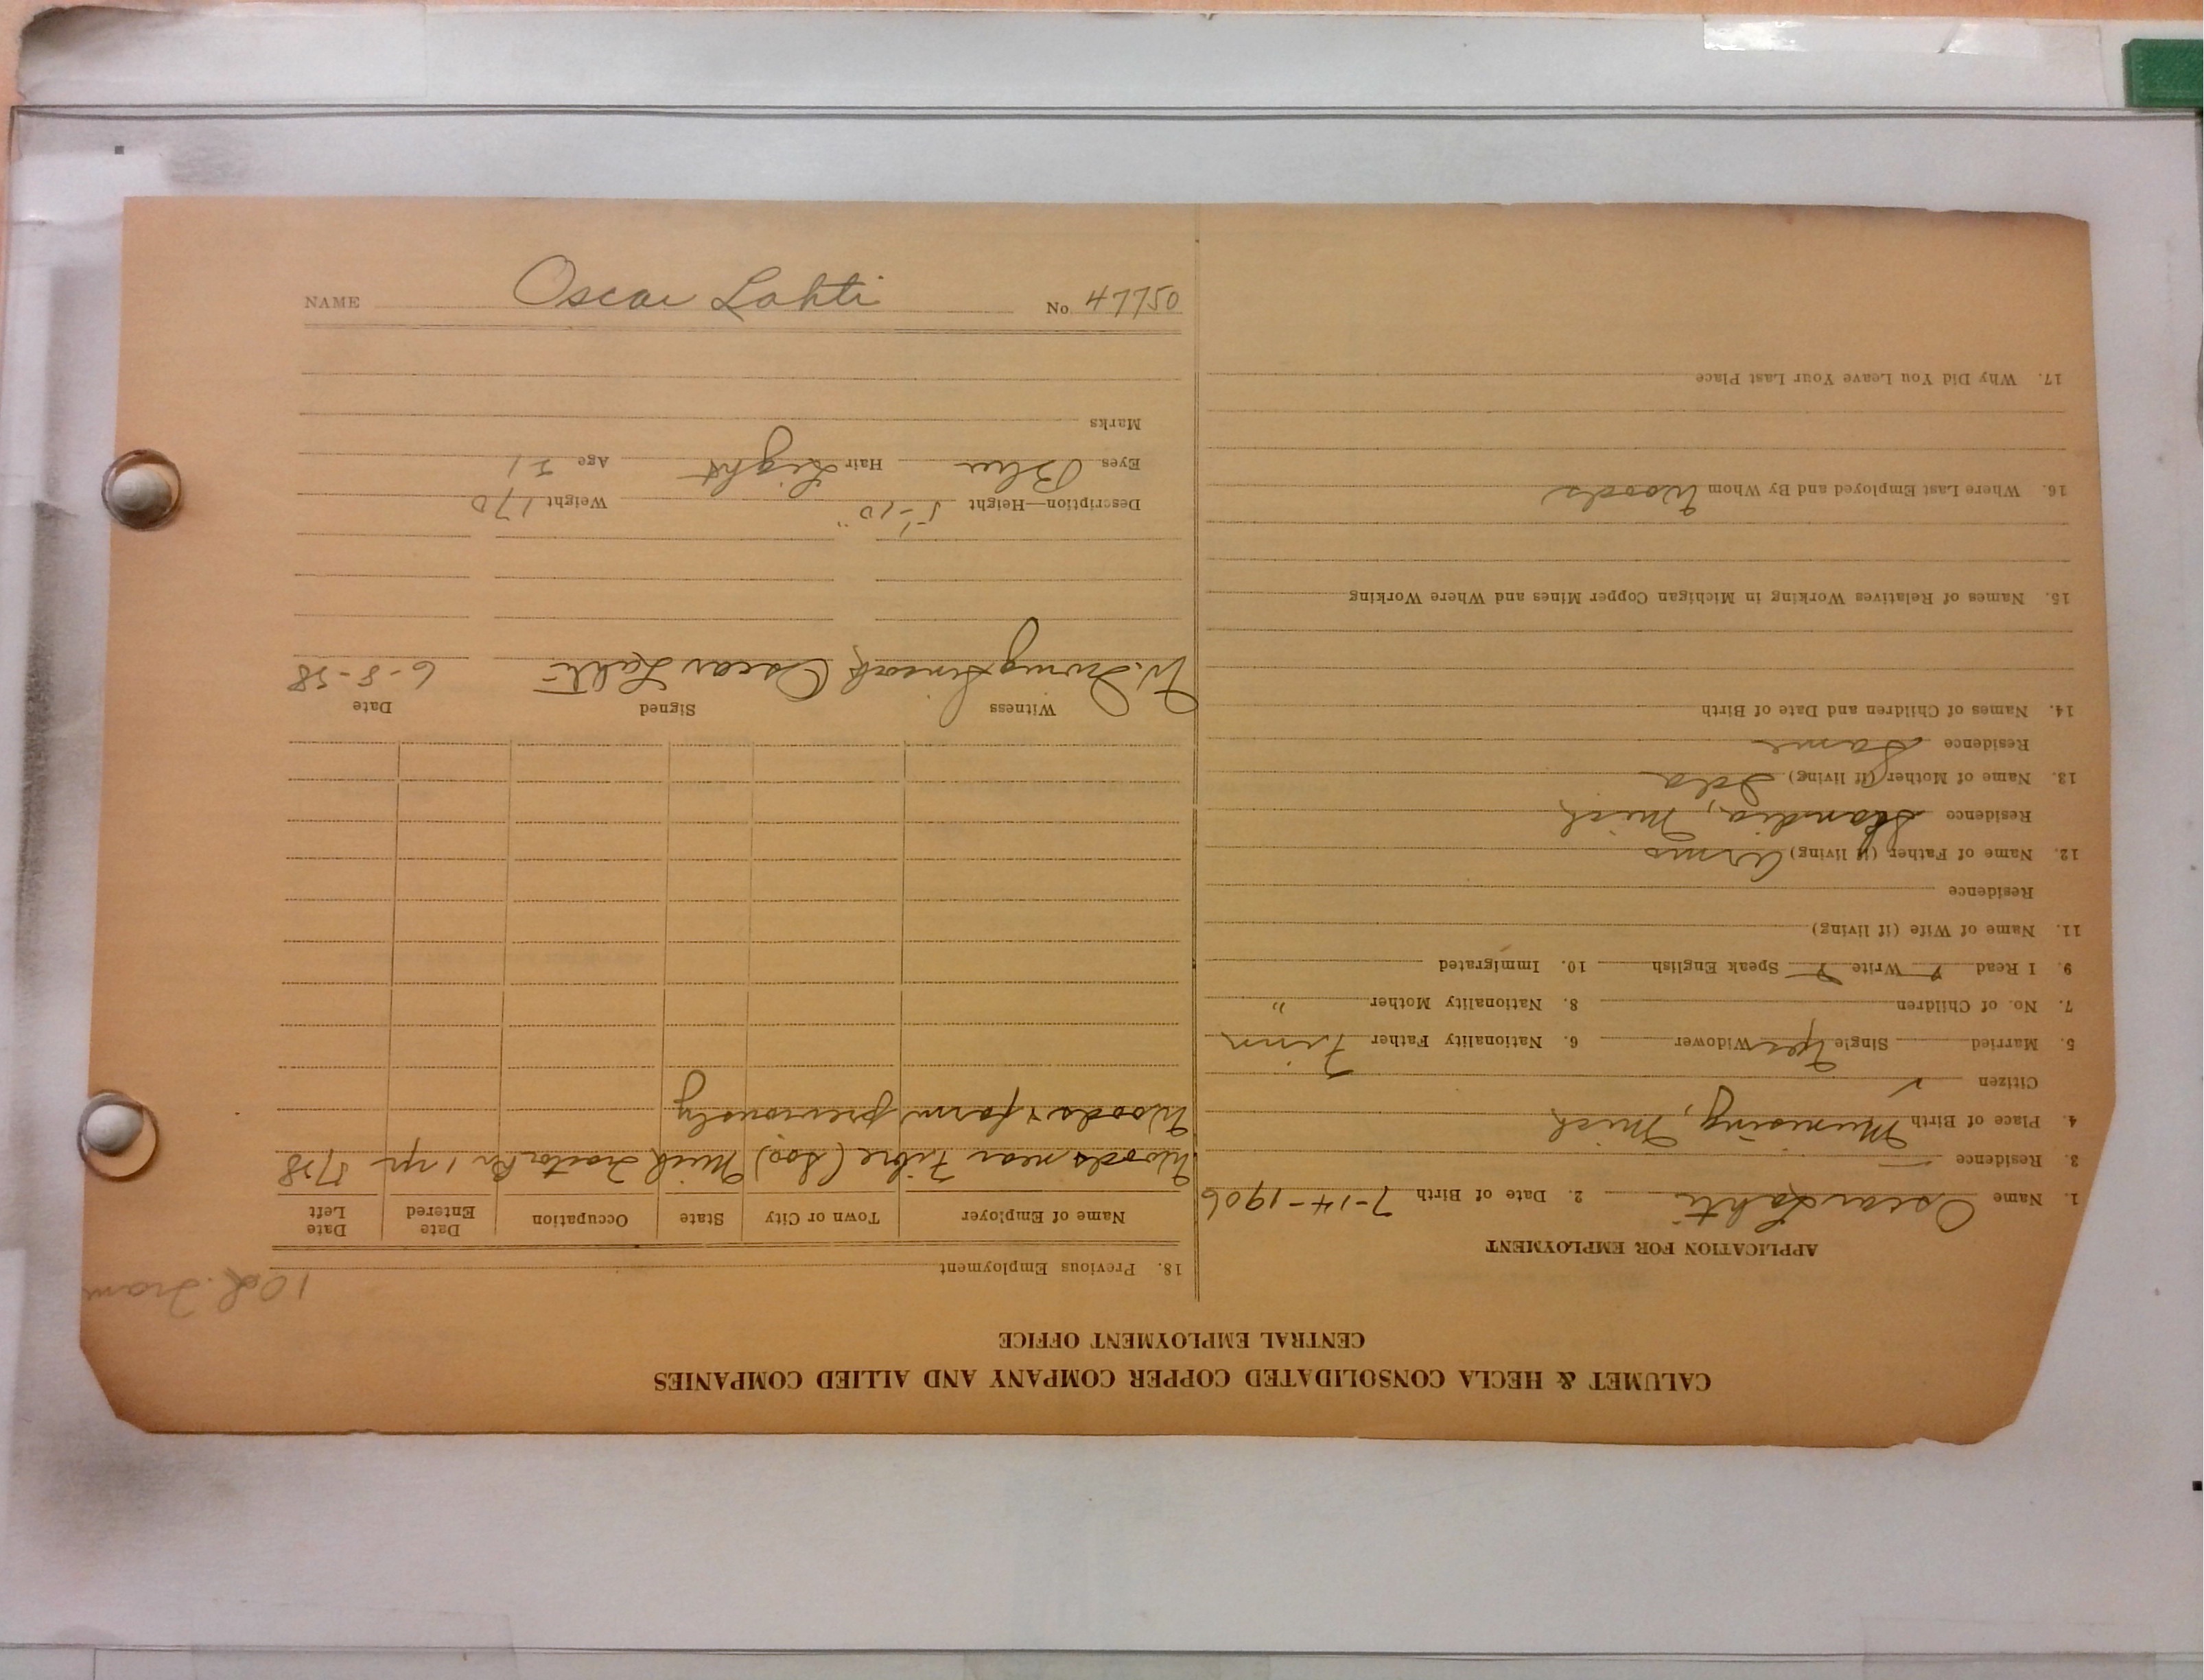 NAME Oscar Lahti No 47750
CALUMET & HECLA CONSOLIDATED COPPER COMPANY AND ALLIED COMPANIES
CENTRAL EMPLOYMENT OFFICE
APPLICATION FOR EMPLOYMENT
1. Name Oscar Lahti 2. Date of Birth 7-14-1906
3. Residence
4. Place of Birth Munising, Mich
Citizen ✓
5. Married Single Yes Widower 6. Nationality Father Finn
7. No. of Children 8. Nationality Mother "
9. I Read Write Speak English 10. Immigrated
11. Name of Wife (if living)
Residence
12. Name of Father (if living)
Residence Skandia, Mich
13. Name of Mother (if living) Ida
Residence Same
14. Names of Children and Date of Birth
15. Names of Relatives Working in Michigan Copper Mines and Where Working
16. Where Last Employed and By Whom Woods
17. Why Did You Leave Your Last Place
18. Previous Employment
Name of Employer Town or City State Occupation Date Entered Date Left
Woods near Fibre (Soo) Mich Tractor 1 yr
Woods & farm previously
Witness Signed Date
Oscar Lahti 6-8-58
Description—Height 5'-10" Weight 170
Eyes Blue Hair Light Age 51
Marks